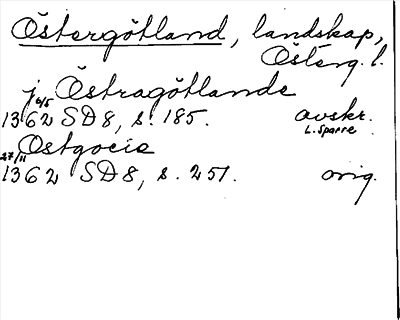 Östergötland, landskap,
Österg. l.
j Östragötlande
6/5
1362 SD 8, s. 185. avskr.
L. Sparre
Ostgocia
27/11
1362 SD 8, s. 251. orig.